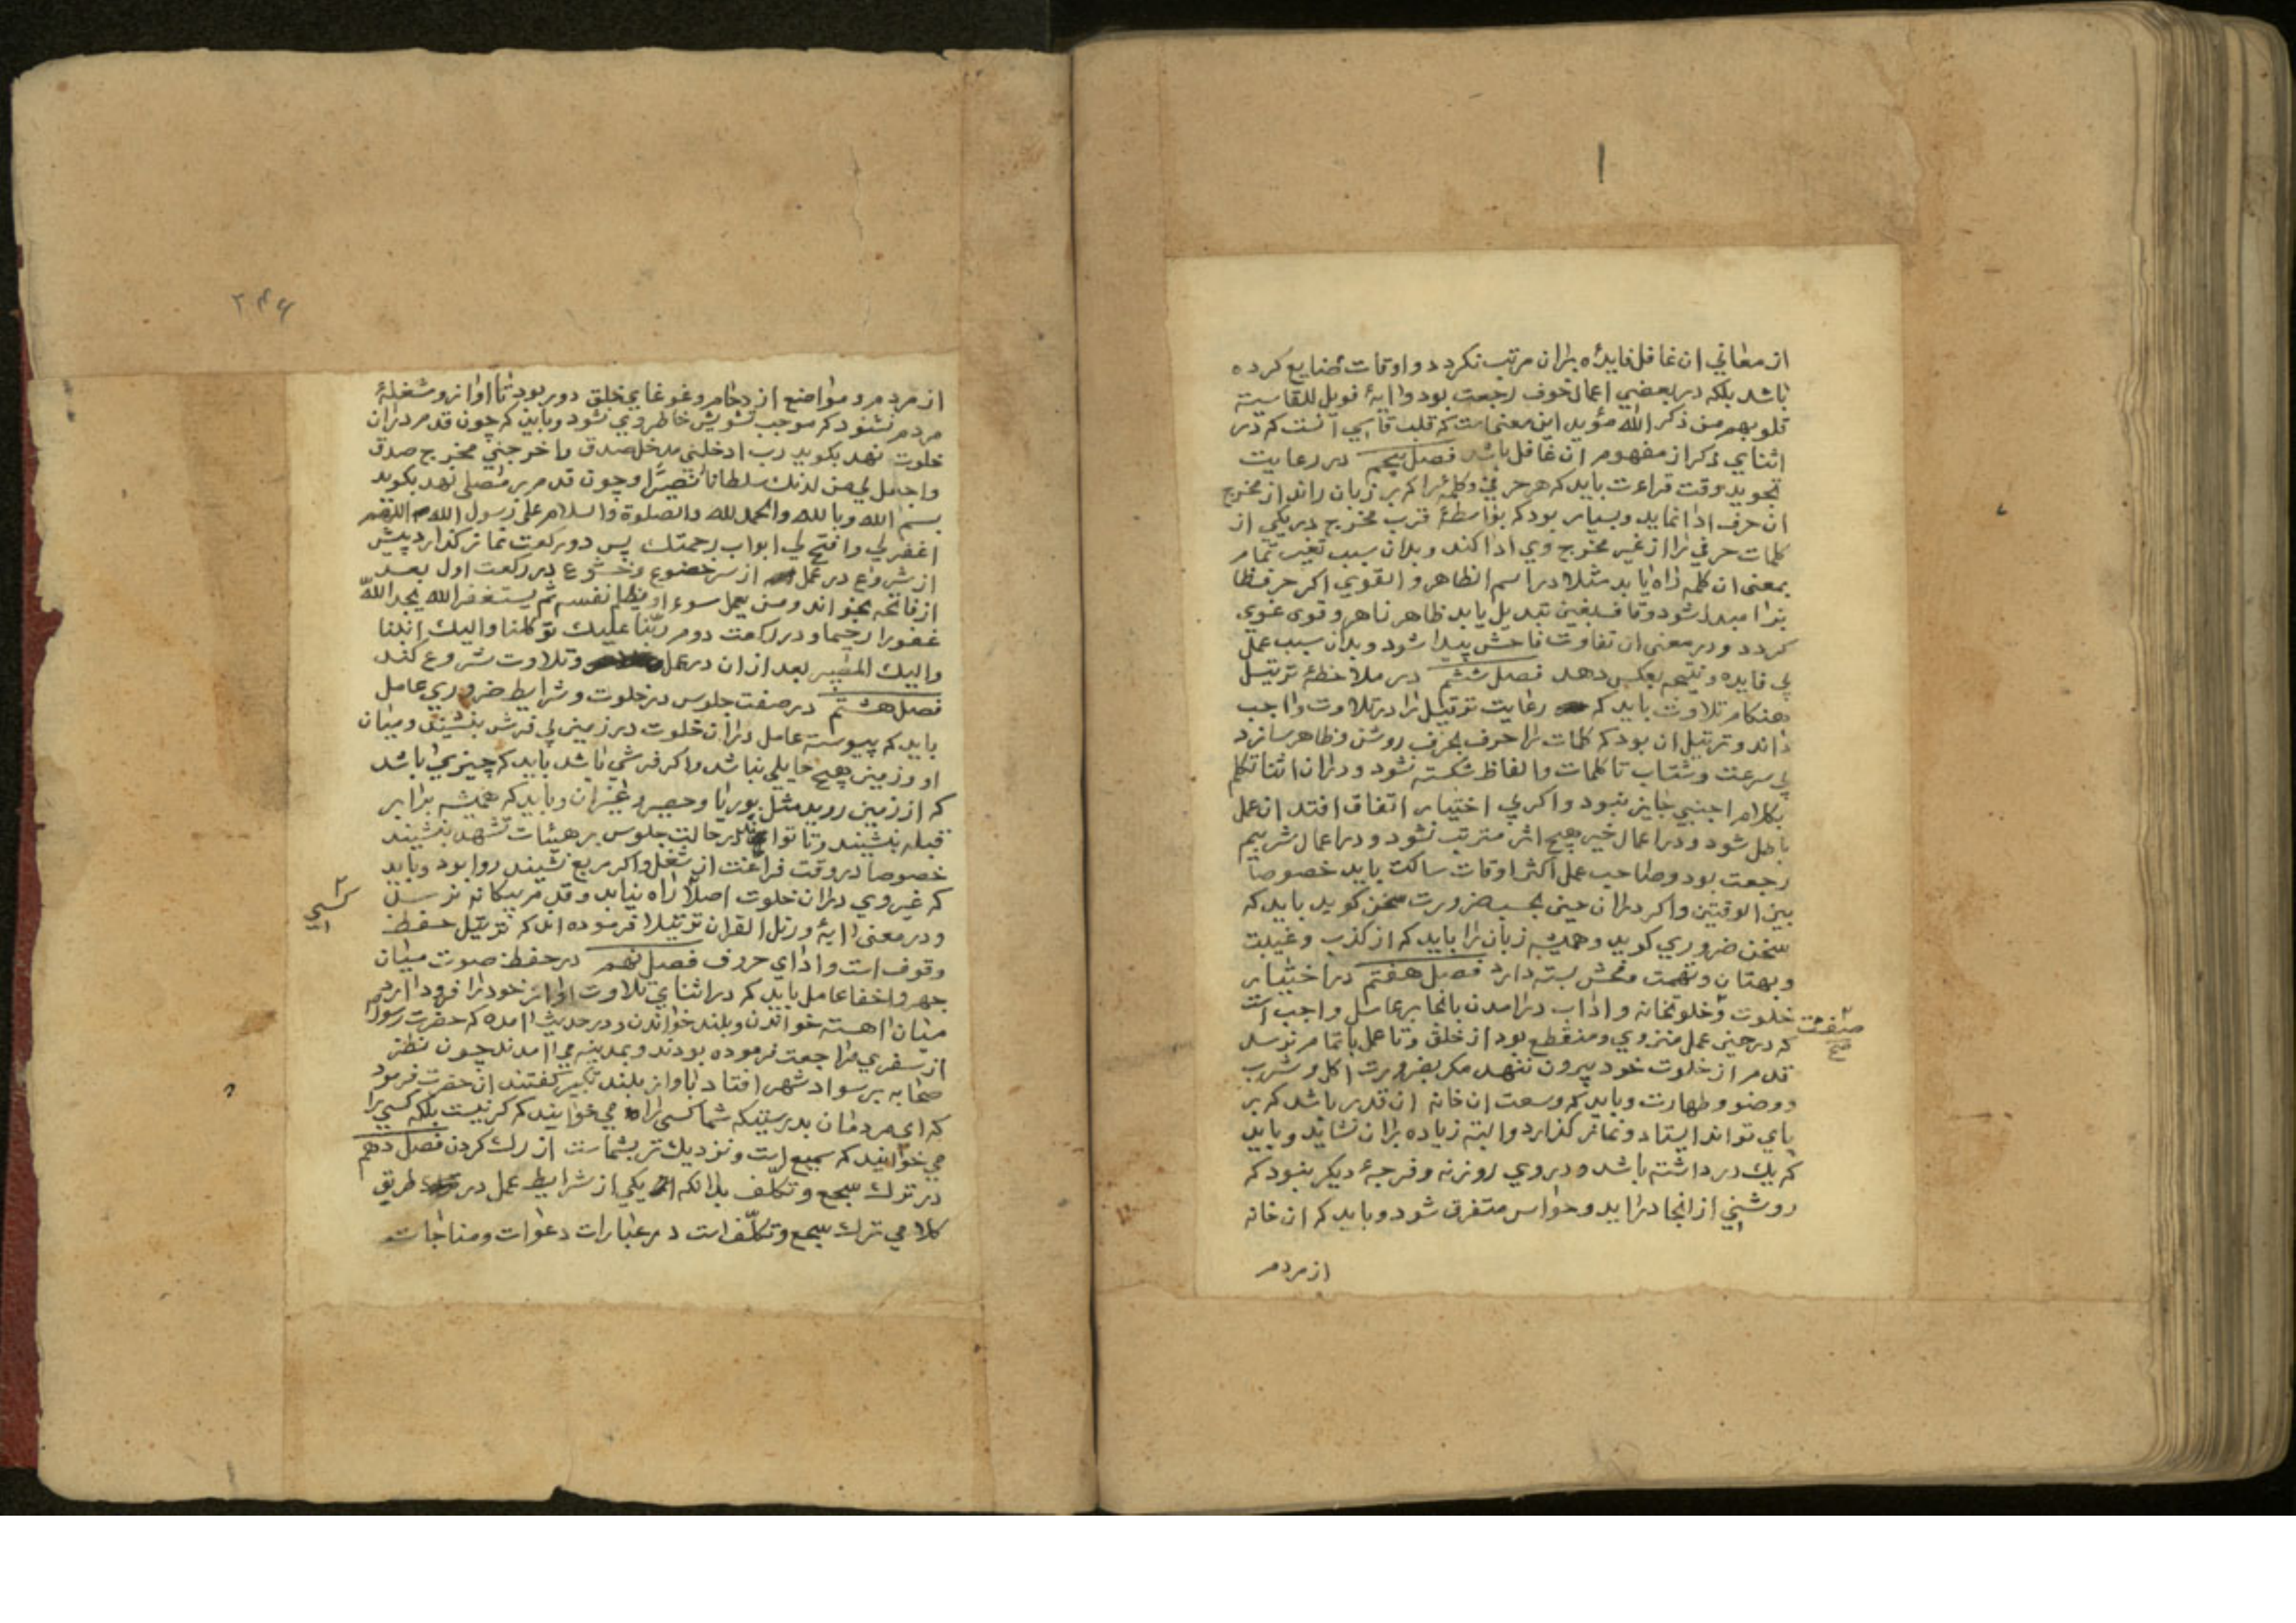 از معاني ان غافل فايدۀ بران مرتب نكردد و اوقات ضايع كرده
باشد بلكه در بعضي اعمال خوف رجعت بود و ايۀ فويل للقاسيته
قلوبهم من ذكر الله مؤيد اين معنى است كه قلب قاسي آنست كه در
اثناي ذكر از مفهوم ان غافل باشد فصل پنجم در رعايت
تجويد وقت قراءت بايد كه هر حرفي و كلمۀ را كه بر زبان راند از مخرج
ان حرف ادا نمايد و بسيار بود كه بواسطۀ قرب مخرج در يكي از
كلمات حرفي را از غير مخرج وي ادا كند و بدان سبب تغير تمام
بمعنى ان كلمه راه يابد مثلا در اسم الظاهر و القوي اكر حرف ظا
بزا مبدل شود و قاف بغين تبديل يابد ظاهر زاهر و قوى غوي
كردد و در معنى ان تفاوت فاحش پيدا شود و بدان سبب عمل
بي فايده و نتيجه بعكس دهد فصل ششم در ملاحظۀ ترتيل
هنكام تلاوت بايد كه رعايت ترتيل را در تلاوت واجب
داند و ترتيل ان بود كه كلمات را حرف بحرف روشن و ظاهر سازد
بي سرعت و شتاب تا كلمات و الفاظ شكسته نشود و دران اثنا تكلم
بكلام اجنبي جايز نبود و اكر بي اختيار اتفاق افتد ان عمل
باطل شود و در اعمال خير هيچ اثر مترتب نشود و در اعمال شر بيم
رجعت بود و صاحب عمل اكثر اوقات ساكت بايد خصوصا
بين الوقتين و اكر دران حين بحسب ضرورت سخن كويد بايد كه
سخن ضروري كويد و هميشه زبان را بايد كه از كذب و غيبت
و بهتان و تهمت و فحش بسته دارد فصل هفتم در اختيار
خلوت و خلوتخانه و اداب درامدن بانجا بر عامل واجب است
صفت
صح
كه در حين عمل منزوي و منقطع بود از خلق و تا عمل باتمام نرسد
قدم از خلوت خود بيرون ننهد مكر بضرورت اكل و شرب
و وضو و طهارت و بايد كه وسعت ان خانه ان قدر باشد كه بر
پاي تواند ايستاد و نماز كذارد و البته زياده بران نشايد و بايد
كه يك در داشته باشد و در وي روزنه و فرجۀ ديكر نبود كه
روشني از انجا درايد و حواس متفرق شود و بايد كه ان خانه
از مردم
۲۴۶
از مردم و مواضع ازدحام و غوغاي خلق دور بود تا اواز و مشغلۀ
مردم نشنود كه موجب تشويش خاطر وي نشود و بايد كه چون قدم دران
خلوت نهد بكويد رب ادخلني مدخل صدق و اخرجني مخرج صدق
واجعل لي من لدنك سلطانا نصيرا و چون قدم بر مصلى نهد بكويد
بسم الله و بالله والحمد لله والصلوة والسلام على رسول الله اللهم
اغفر لي وافتح لي ابواب رحمتك پس دو ركعت نماز كذارد پيش
از شروع در عمل از سر خضوع و خشوع در ركعت اول بعد
از فاتحه بخواند و من يعمل سوء او يظلم نفسه ثم يستغفر الله يجد الله
غفورا رحيما و در ركعت دوم ربنا عليك توكلنا واليك انبنا
واليك المصير بعد ازان در عمل و تلاوت شروع كند
فصل هشتم در صفت جلوس در خلوت و شرايط ضروري عامل
بايد كه پيوسته عامل دران خلوت در زمين بي فرش بنشيند و ميان
او و زمين هيچ حايلي نباشد و اكر فرشي باشد بايد كه چيزي باشد
كه از زمين رويد مثل بوريا و حصير و غير ان و بايد كه هميشه برابر
قبله بنشيند و تا تواند در حالت جلوس بر هيئات تشهد بنشيند
خصوصا در وقت فراغت از شغل و اكر مربع نشيند روا بود و بايد
كه غير وي دران خلوت اصلا راه نيابد و قدم بيكانه نرسد
كسي
و در معنى ايۀ و رتل القران ترتيلا فرموده اند كه ترتيل حفظ
وقوف است و اداي حروف فصل نهم در حفظ صوت ميان
جهر و اخفا عامل بايد كه در اثناي تلاوت اواز خود را فرود ارد
ميان اهسته خواندن و بلند خواندن و در حديث امده كه حضرت رسول
از سفري مراجعت فرموده بودند و بمدينه مي امدند چون نظر
صحابه بر سواد شهر افتاد باواز بلند تكبير كفتند ان حضرت فرمود
كه اي مردمان بدرستيكه شما كسي را مي خوانيد كه كر نيست بلكه كسي را
مي خوانيد كه سميع است و نزديك تر بشماست از رك كردن فصل دهم
در ترك سجع و تكلف بدانكه يكي از شرايط عمل در طريق
كلامي ترك سجع و تكلّف است در عبارات دعوات و مناجات